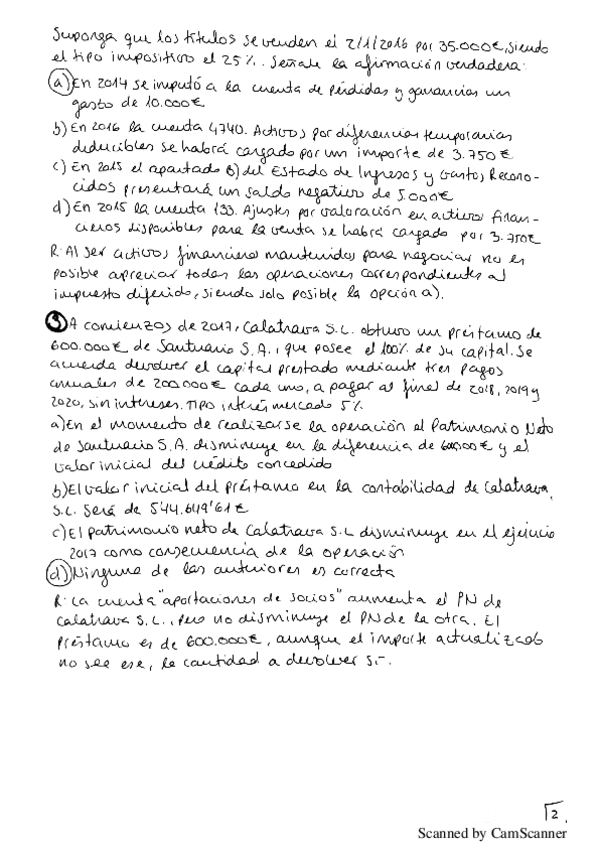 Suponga que los títulos se venden el 2/1/2016 por 35.000€, siendo
el tipo impositivo el 25%. Señale la afirmación verdadera:
a) En 2014 se imputó a la cuenta de pérdidas y ganancias un
gasto de 10.000€
b) En 2016 la cuenta 4740. Activos por diferencias temporarias
deducibles se habrá cargado por un importe de 3.750€
c) En 2015 el apartado B) del Estado de Ingresos y Gastos Recono-
cidos presentará un saldo negativo de 5.000€
d) En 2015 la cuenta 133. Ajustes por valoración en activos finan-
cieros disponibles para la venta se habrá cargado por 3.750€
R: Al ser activos financieros mantenidos para negociar no es
posible apreciar todas las operaciones correspondientes al
impuesto diferido, siendo solo posible la opción a).
3) A comienzos de 2017, Calatrava S.L. obtuvo un préstamo de
600.000€ de Santuario S.A., que posee el 100% de su capital. Se
acuerda devolver el capital prestado mediante tres pagos
anuales de 200.000€ cada uno, a pagar al final de 2018, 2019 y
2020, sin intereses. Tipo interés mercado 5%
a) En el momento de realizarse la operación el Patrimonio Neto
de Santuario S.A. disminuye en la diferencia de 600.000€ y el
valor inicial del crédito concedido
b) El valor inicial del préstamo en la contabilidad de Calatrava,
S.L. será de 544.649'61€
c) El patrimonio neto de Calatrava S.L disminuye en el ejercicio
2017 como consecuencia de la operación
d) Ninguna de las anteriores es correcta
R: La cuenta "aportaciones de socios" aumenta el PN de
Calatrava S.L., pero no disminuye el PN de la otra. El
préstamo es de 600.000€, aunque el importe actualizado
no sea ese, la cantidad a devolver sí.
2.
Scanned by CamScanner